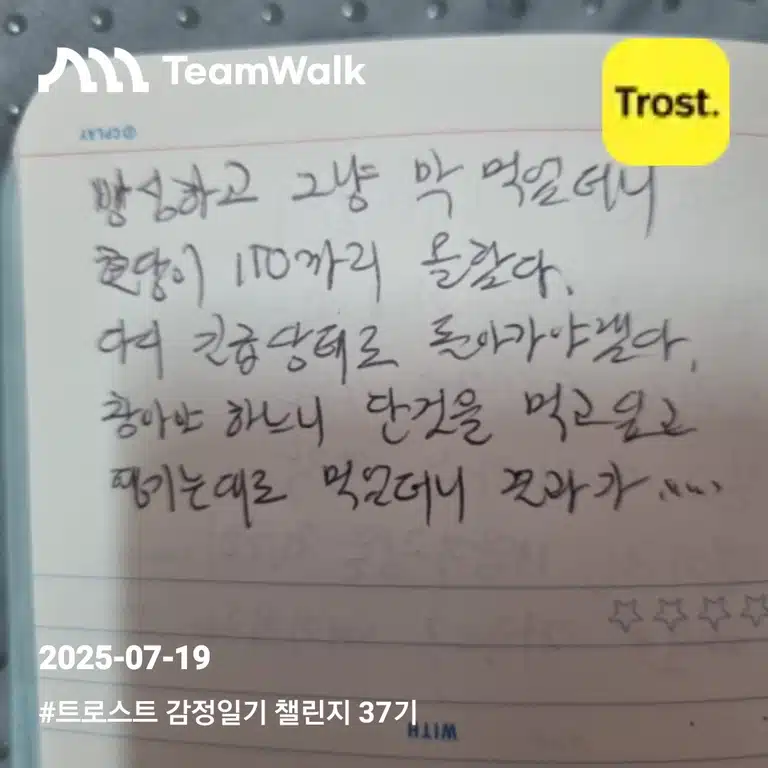 TeamWalk
Trost.
CPLAY
방심하고 그냥 막 먹었더니
혈당이 170까지 올랐다.
다시 긴급상태로 돌아가야겠다.
참아야 하느니 단것을 먹고싶고
땡기는대로 먹었더니 결과가.....
2025-07-19
#트로스트 감정일기 챌린지 37기
WITH